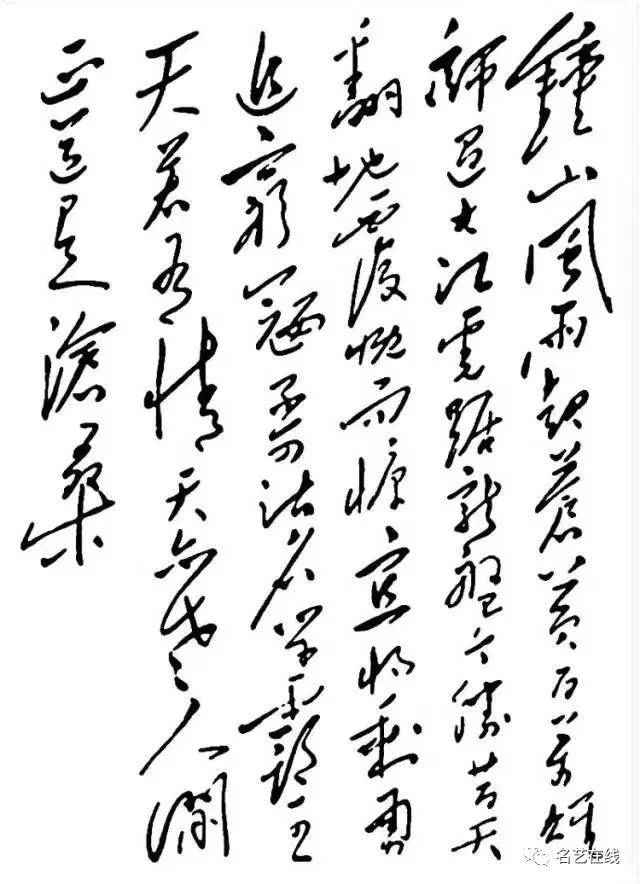 鍾山風雨起蒼黃百萬雄
師過大江虎踞龍盤今勝昔天
翻地覆慨而慷宜將剩勇
追窮寇不可沽名學霸王
天若有情天亦老人間
正道是滄桑
名艺在线